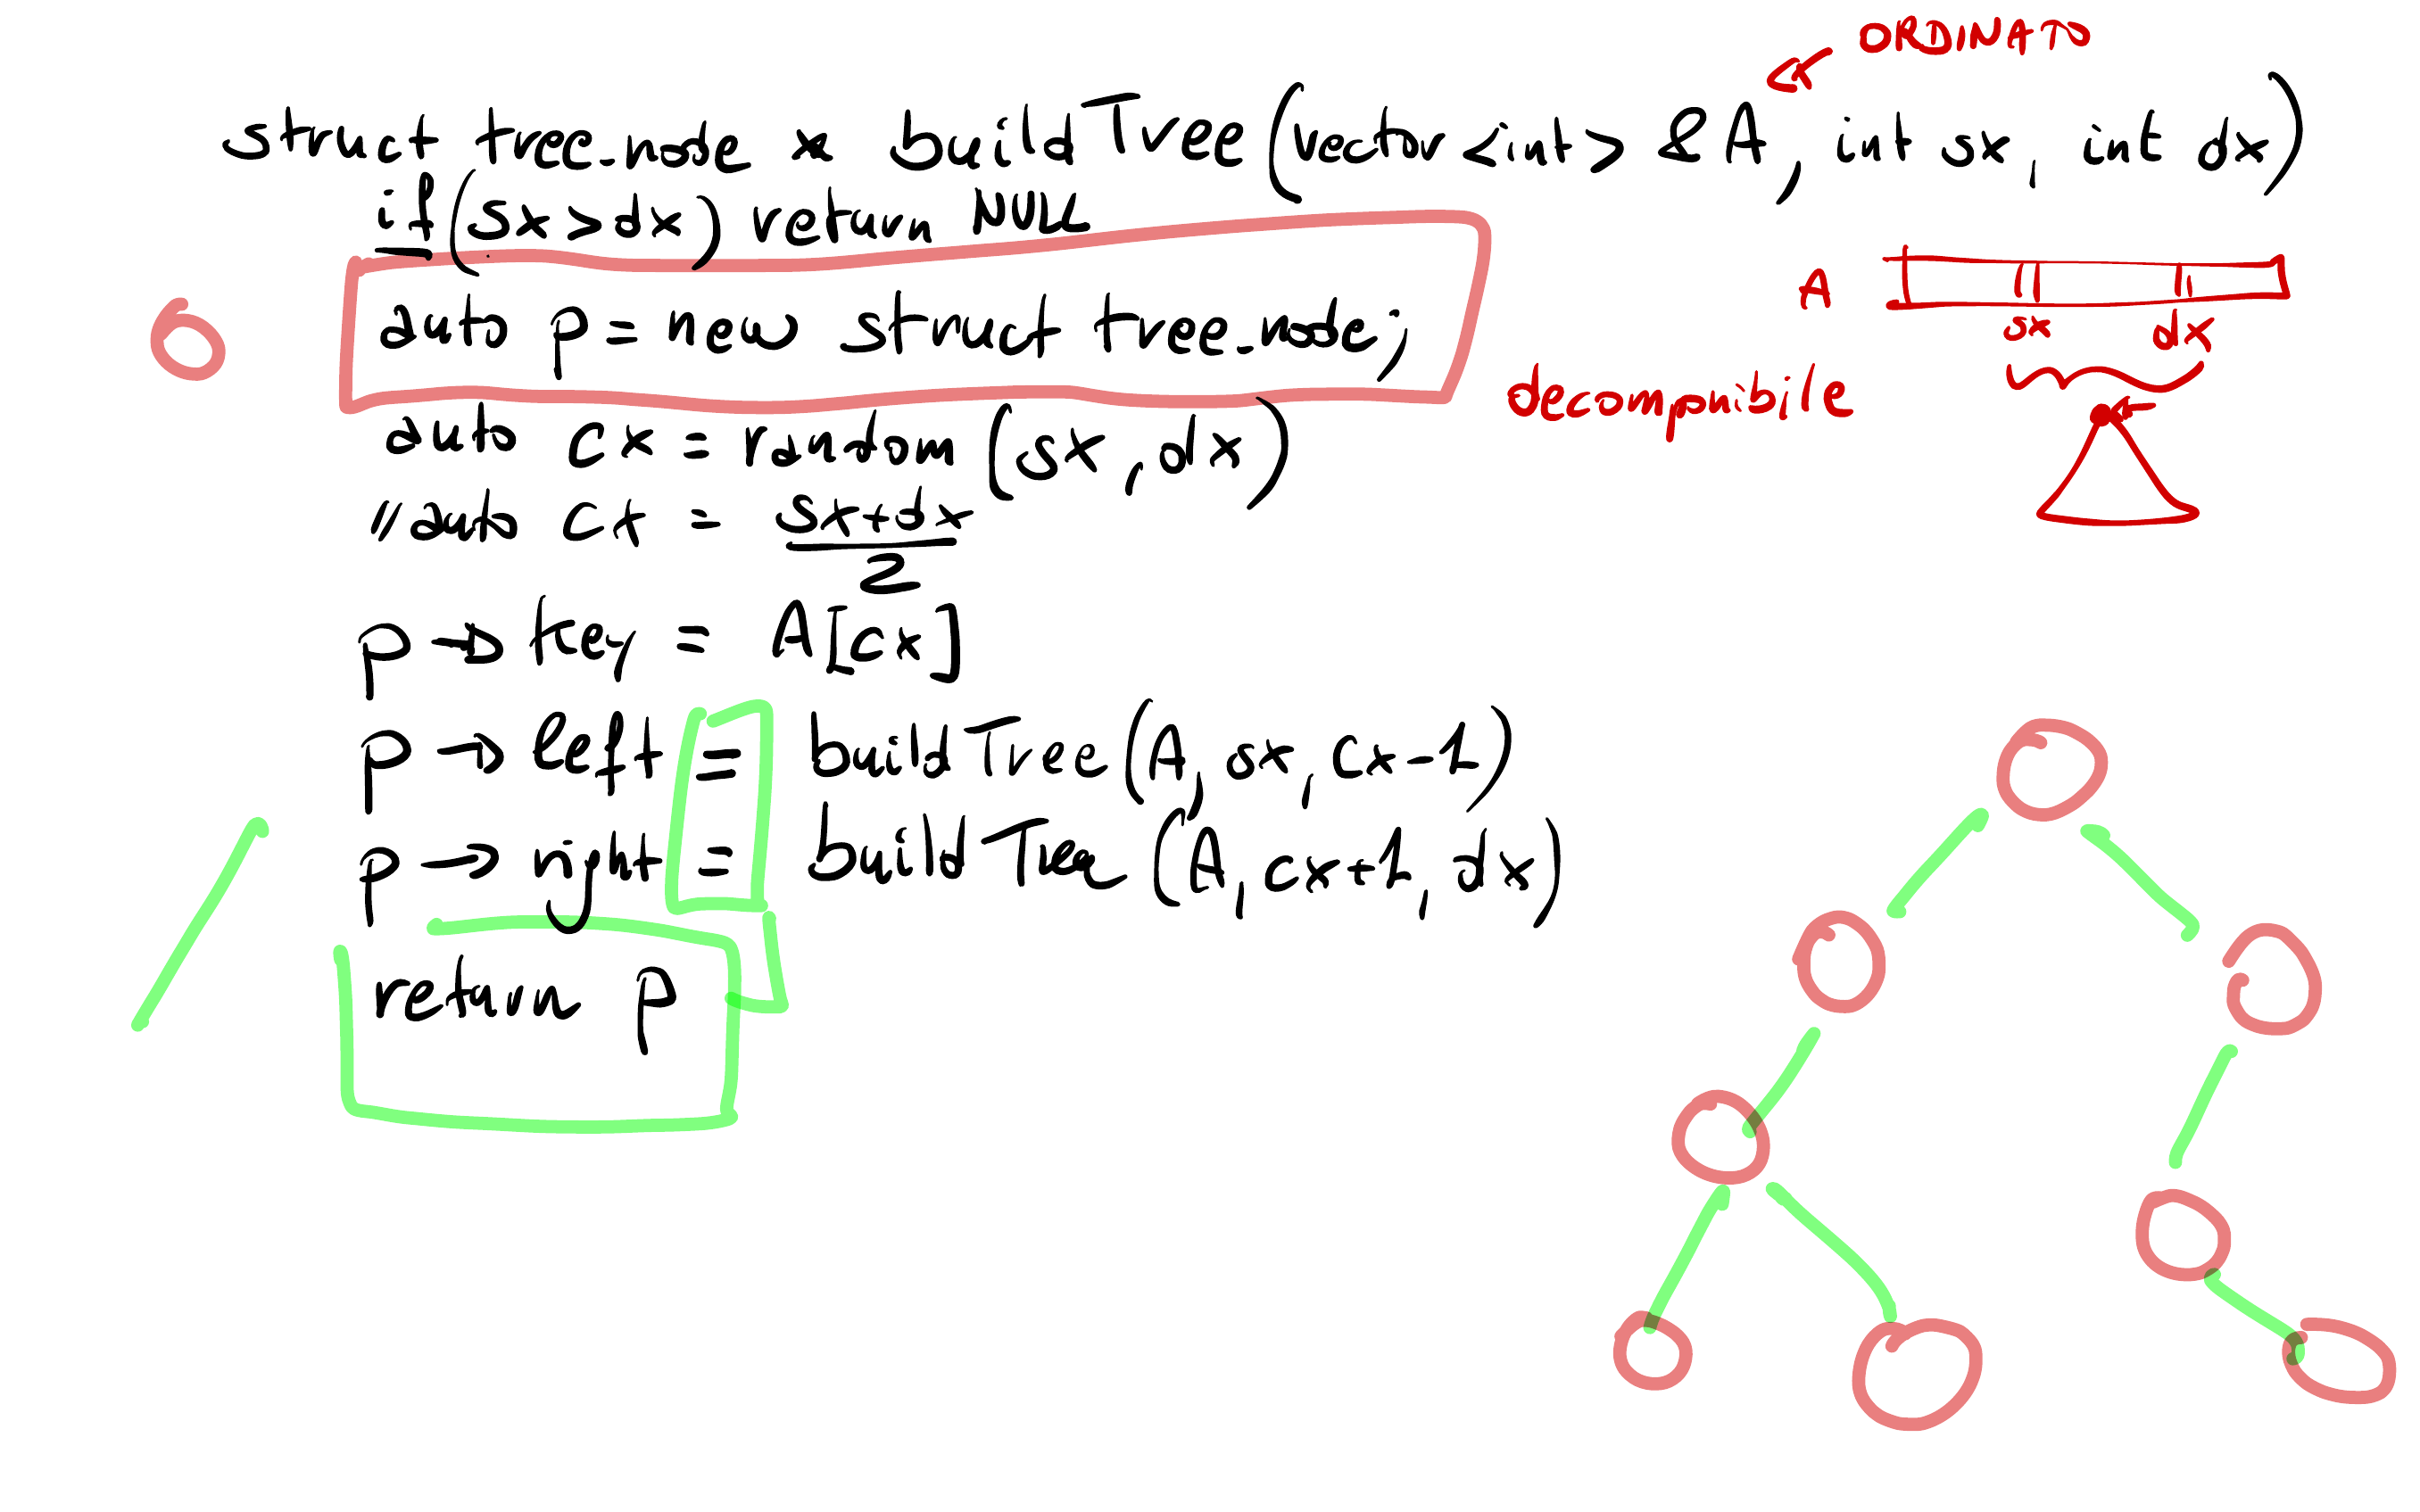 ORDINATO
struct tree_node * buildTree(vector<int> &A, int sx, int dx)
if(sx>dx) return NULL
auto p = new struct tree_node;
A
sx dx
decomponibile
auto cx = random(sx, dx)
//auto cx = sx+dx
2
p → key = A[cx]
p → left = buildTree(A, sx, cx-1)
p → right = buildTree(A, cx+1, dx)
return p